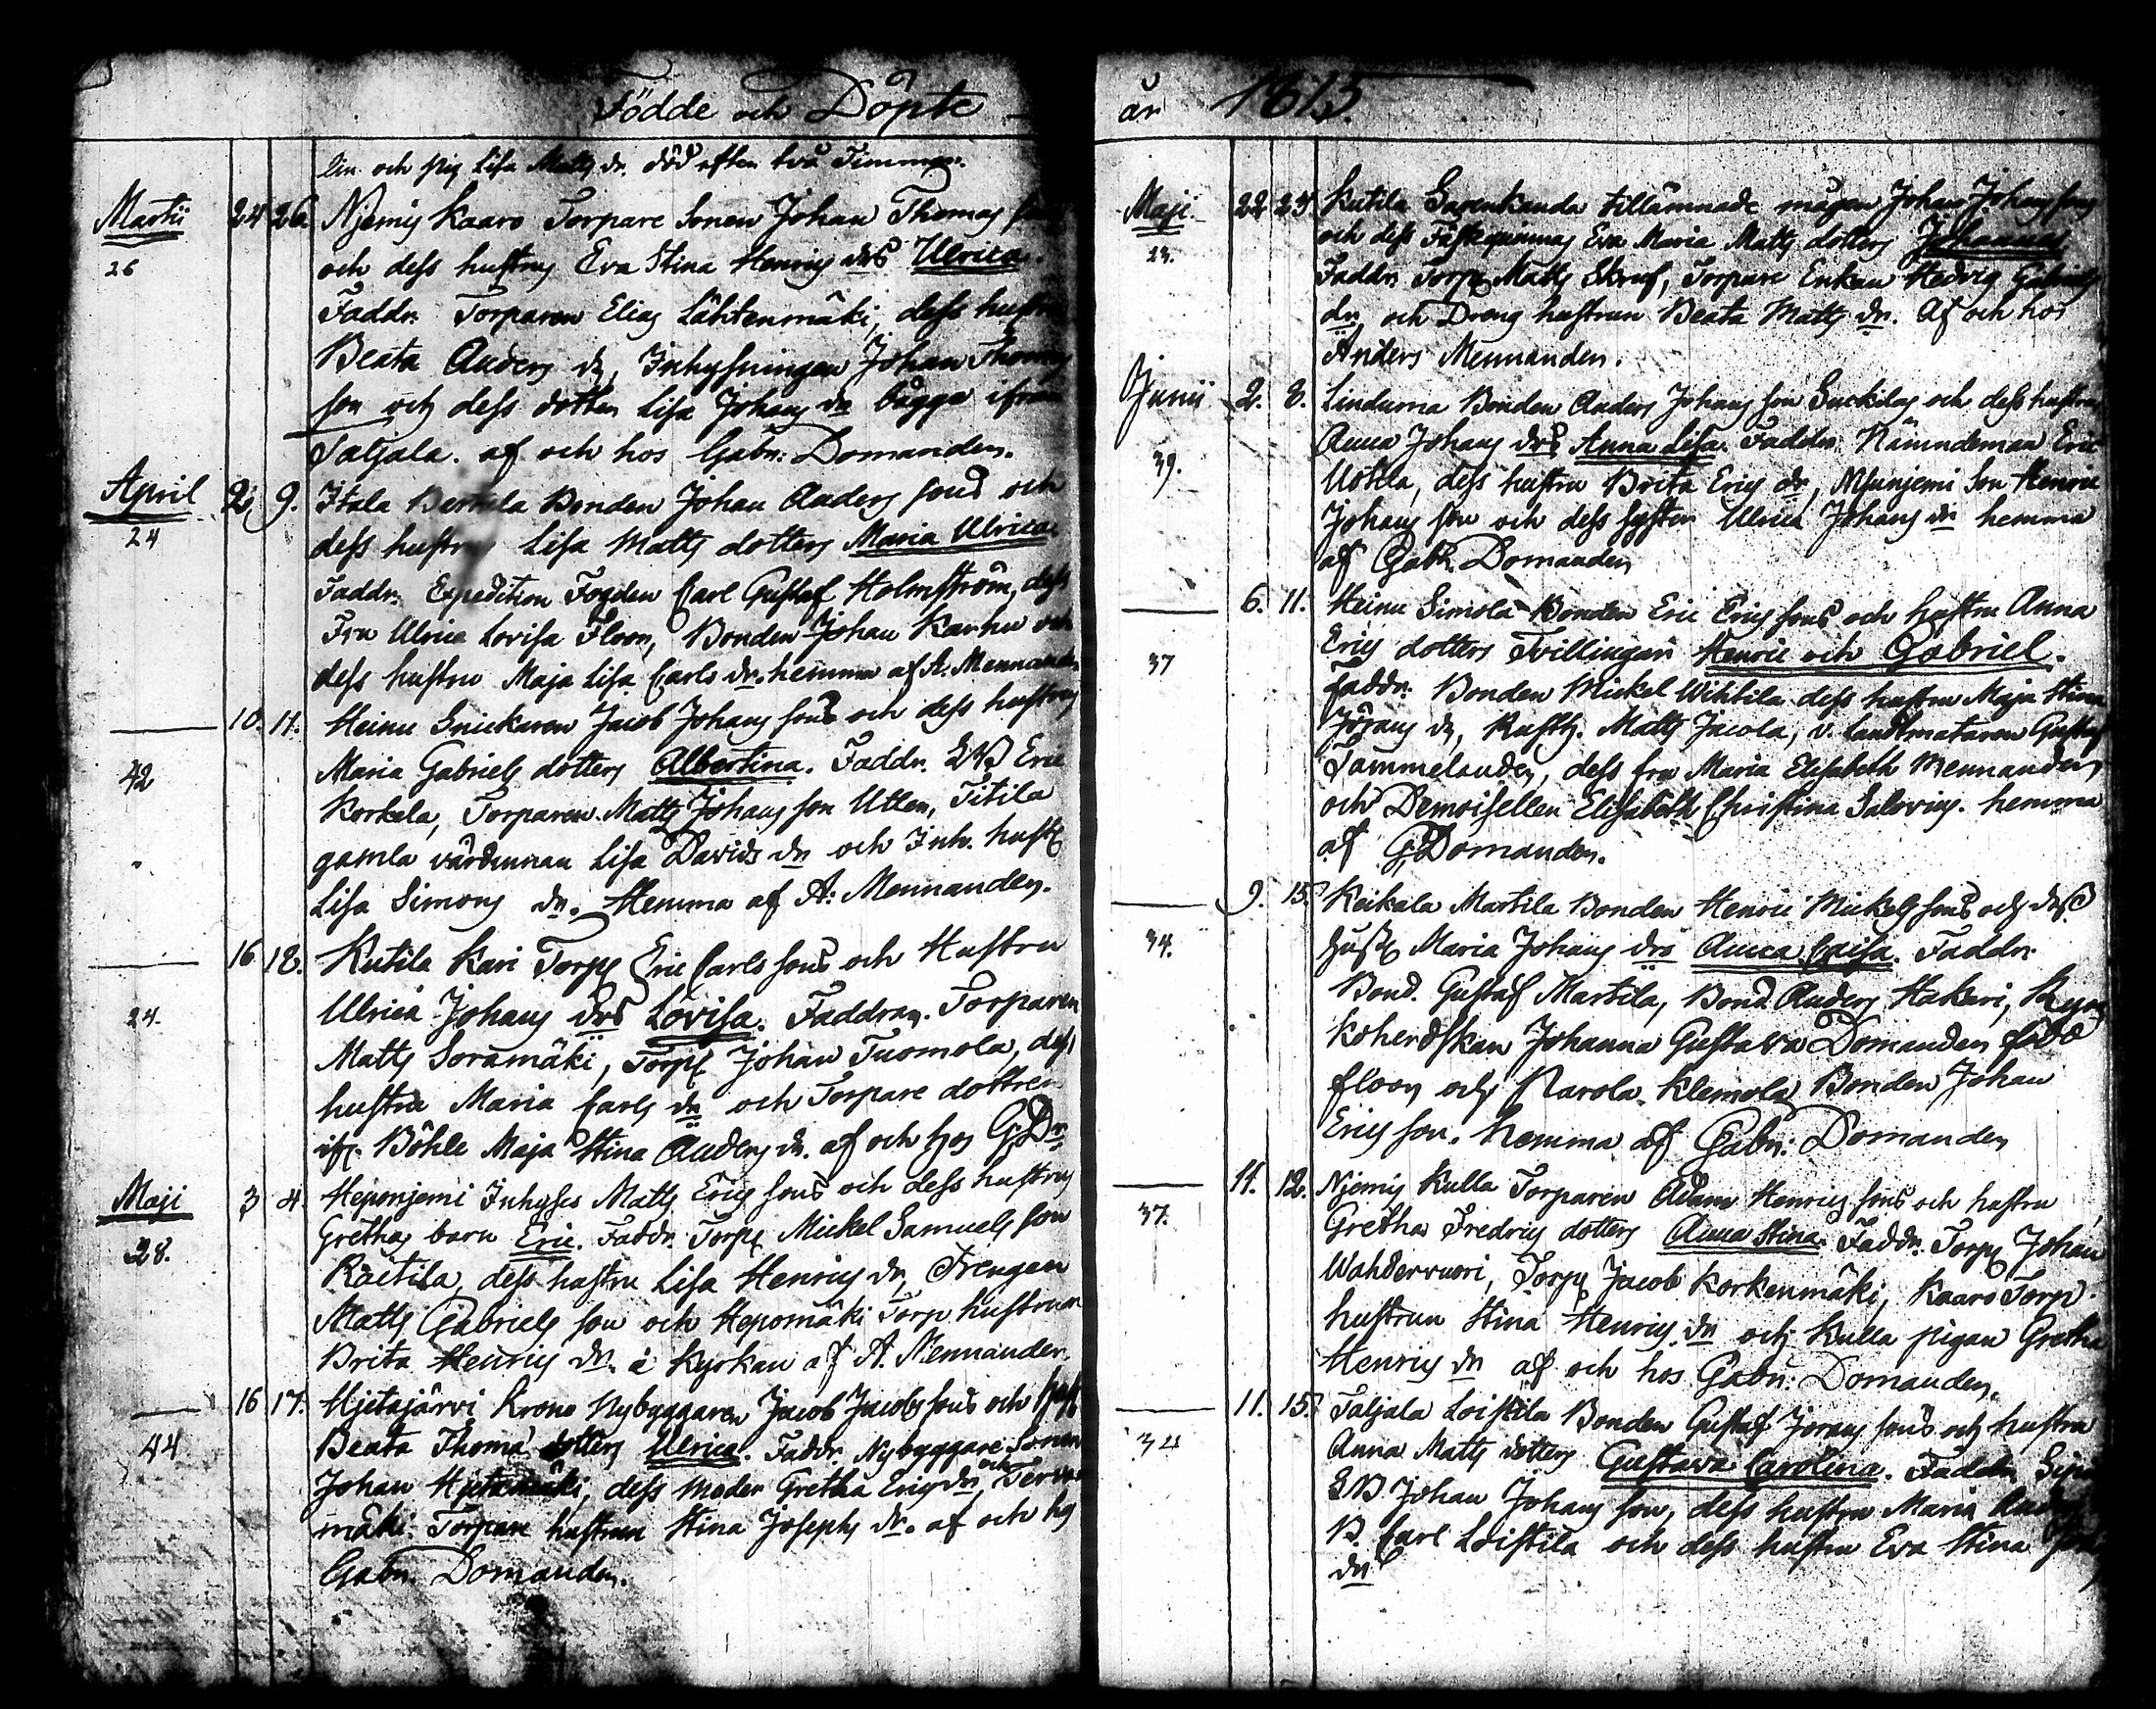 Födde och Döpte
och pig Lisa Matts dr. död efter två Timmar.
Martii 24 26. Njemis Kaaro Torpare Sonen Johan Thomas
26 och dess hustrus Eva Stina Henrics drs Ulrica.
Faddr. Torparen Elias Lähtenmäki, dess hustru
Beata Anders dr, Inhysningen Johan Thomas
son och dess dotter Lisa Johans dr bägge ifrån
Taljala. af och hos Gabr: Domander.
April 2. 9. Itala Bertula Bonden Johan Anders sons och
24 dess hustrus Lisa Matts dotters Maria Ulrica.
Faddr. Expedition Fogden Carl Gustaf Holmström, dess
Fru Ulrica Lovisa Floor, Bonden Johan Karhu och
dess hustru Maja Lisa Carls dr. hemma af A. Mennander
10. 11. Heinu Snickaren Jacob Johans sons och dess hustrus
Maria Gabriels dotters Albertina. Faddr. Eric
42 Korkela, Torparen Matts Johans son Utlen, Titila
gamla värdinnan Lisa Davids dr och Inh. hust
Lisa Simons dr. Hemma af A: Mennander.
16 18. Kutila Kari Torp Eric Carls sons och Hustru
24. Ulrica Johans drs Lovisa. Faddran. Torparen
Matts Soramäki, Torp Johan Tuomola, dess
hustru Maria Carls dr och Torpare dottren
ifr. Böhle Maja Stina Anders dr. af och hos G. Dr
Maji 3 4. Heponjemi Inhyses Matts Erics sons och dess hustrus
28. Grethas barn Eric. Faddr. Torp Mickel Samuels son
Raitila, dess hustru Lisa Henrics dr, Drengen
Matts Gabriels son och Hepomäki Torp hustrun
Brita Henrics dr. i Kyrkan af A. Mennander.
16 17. Hjetajärvi Krono Nybyggaren Jacob Jacobs sons och hust
44 Beata Thomæ dotters Ulrica. Faddr. Nybyggare Sonen
Johan Hjetamäki, dess Moder Gretha Erics dr, och Terva
mäki Torpare hustrun Stina Josephs dr. af och hos
Gabr. Domander.
år 1815.
Maji 22 23 Kutila Sarenkanda tillämnade mågen Johan Johans sons
23. och dess Fästeqvinnas Eva Maria Matts dotters Johannes
Faddr. Torp Matts Skruf, Torpare Enkan Hedvig Gabriels
dr, och Dreng hustrun Beata Matts dr. Af och hos
Anders Mennander.
Junii 2. 8. Lindurna Bonden Anders Johans son Suckilas och dess hustrus
39. Anna Johans drs Anna Lisa. Faddr. Nämndeman Eric
Uotila, dess hustru Brita Erics dr, son Henric
Johans son och dess syster Ulrica Johans dr hemma
af Gabr. Domander
6. 11. Heinu Simola Bonden Eric Erics sons och hustru Anna
37 Erics dotters Tvillingar Henric och Gabriel.
Faddr. Bonden Mickel Wihtila dess hustru Maja Stina
Jörans dr, Rusth. Matts Jacola, v. Landtmätaren Gustaf
Tammelander, dess fru Maria Elisabeth Mennander,
och Demoisellen Elisabeth Christina Salovius. hemma
af G. Domander.
9. 15. Keikala Martila Bonden Henric Mickels sons och dess
34. hust Maria Johans drs Anna Caisa. Faddr.
Bond. Gustaf Martila, Bond. Anders Hakari,
Johanna Gustava Domander född
floor och Narola Klemola Bonden Johan
Erics son. hemma af Gabr: Domander
11. 12. Njemis Kulla Torparen Adam Henrics sons och hustru
37. Gretha Fredrics dotters Anna Stina. Faddr. Torp Johan
Wahdervuori, Torp Jacob Korkenmäki, Kaaro Torp.
hustrun Stina Henrics dr och Kulla pigan Gretha
Henrics dr af och hos Gabr: Domander.
11. 15. Taljala Loistila Bonden Gustaf Jörans sons och hustru
34 Anna Matts dotters Gustava Carolina. Faddr.
Johan Johans son, dess hustru Maria Anders
B. Carl Loistila och dess hustru Eva Stina
dr